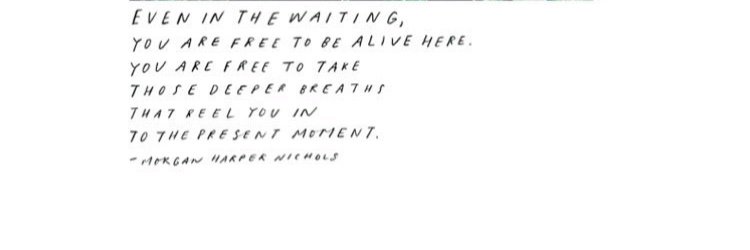 EVEN IN THE WAITING,
YOU ARE FREE TO BE ALIVE HERE.
YOU ARE FREE TO TAKE
THOSE DEEPER BREATHS
THAT REEL YOU IN
TO THE PRESENT MOMENT.
- MORGAN HARPER NICHOLS